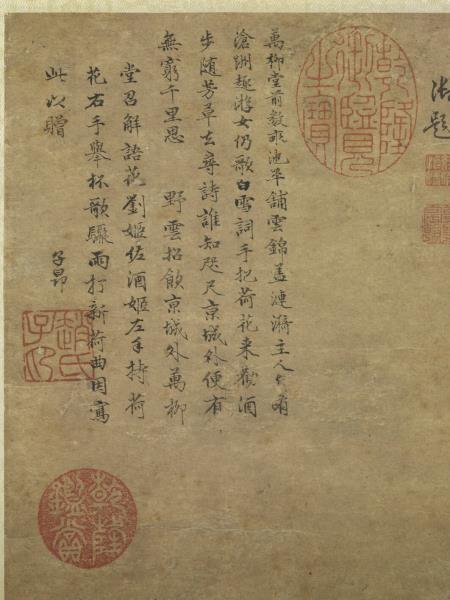 御題
乾隆御覽之寶
萬柳堂前數畝池平鋪雲錦蓋漣漪主人自有
滄洲趣遊女仍歌白雪詞手把荷花来勸酒
步随芳草去尋詩誰知咫尺京城外便有
無窮千里思 野雲招飲京城外萬柳
堂召解語花劉姬佐酒姬左手持荷
花右手舉杯歌驟雨打新荷曲因寫
此以贈
子昂
趙氏子昂
乾隆鑑賞